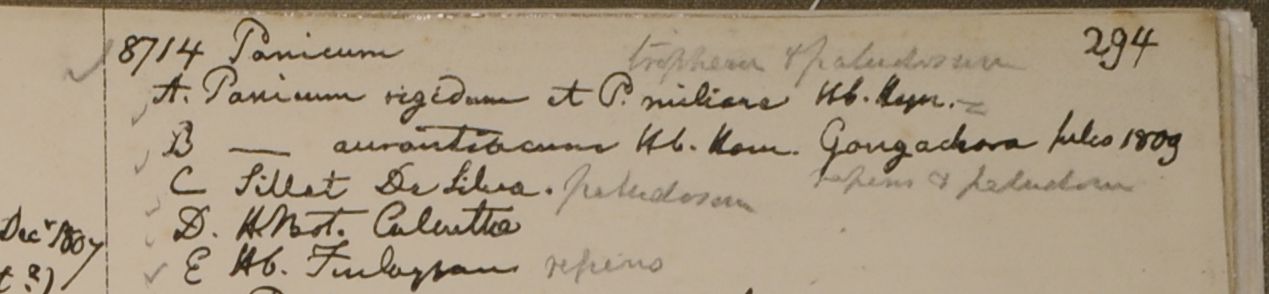 294
8714 Panicum paludosum
A. Panicum rigidum et P. miliare Hb. Heyn.
B — aurantiacum Hb. Ham. Gongachora 1809
repens & paludosum
C Sillet De Silva. paludosum
Decr 1807
D. H Bot. Calcutta
E Hb. Finlayson repens